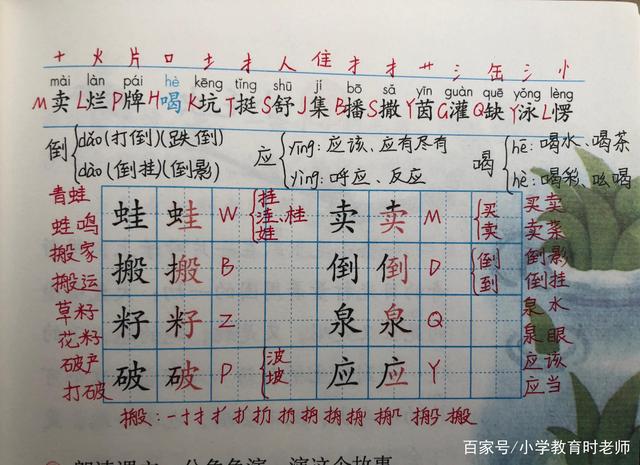 十 火 片 口 土 扌 人 隹 扌 扌 艹 氵 缶 氵 忄
mài làn pái hè kēng tǐng shū jí bō sǎ yīn guàn quē yǒng lèng
M卖 L烂 P牌 H喝 K坑 T挺 S舒 J集 B播 S撒 Y茵 G灌 Q缺 Y泳 L愣
倒 dǎo(打倒)(跌倒) 应 yīng:应该、应有尽有 喝 hē:喝水、喝茶
dào(倒挂)(倒影) yìng:呼应、反应 hè:喝彩、吆喝
青蛙 挂 买 买卖
蛙鸣 蛙 蛙 W 洼、桂 卖 卖 M 卖 卖菜
娃
搬家 倒 倒影
搬运 搬 搬 B 倒 倒 D 到 倒挂
草籽 泉水
花籽 籽 籽 Z 泉 泉 Q 泉眼
破产 波 应该
打破 破 破 P 坡 应 应 Y 应当
搬:
百家号/小学教育时老师